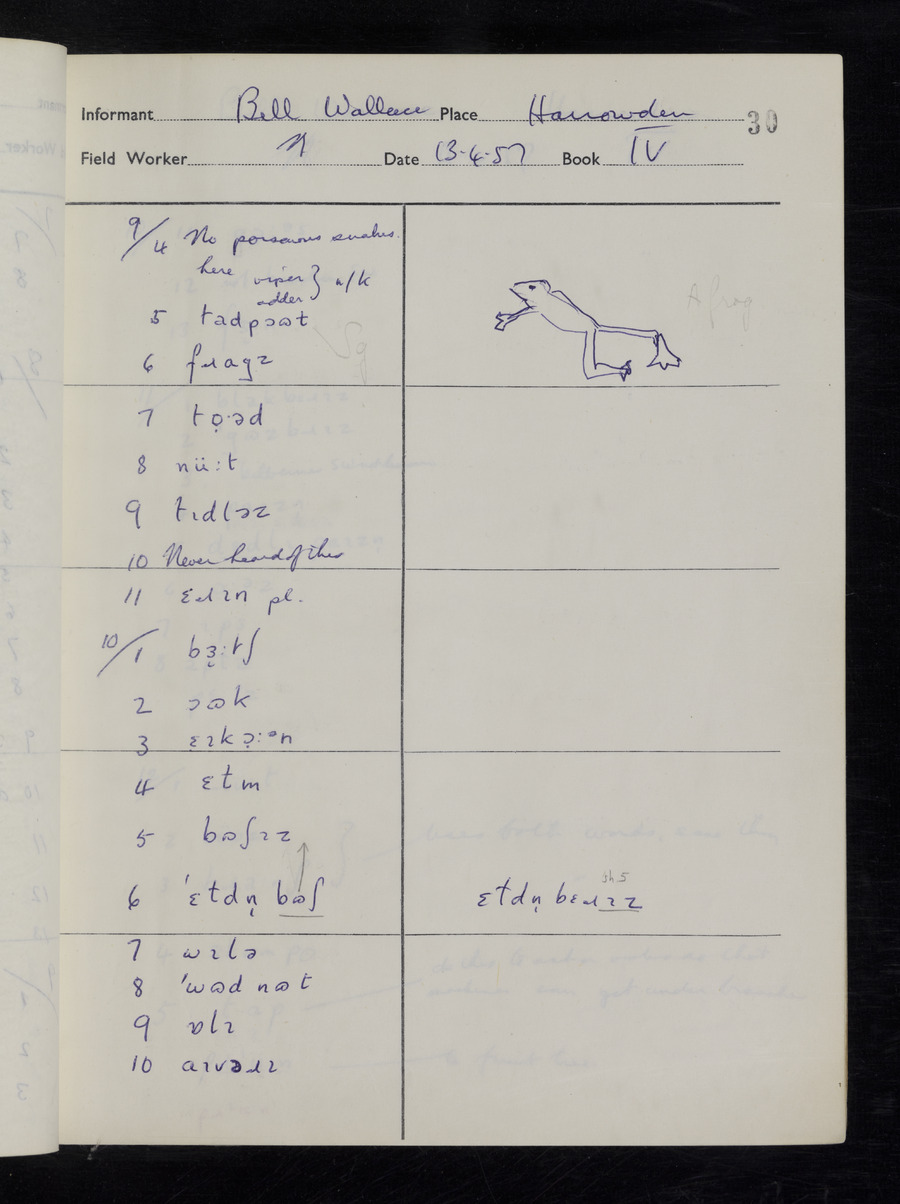 Informant Bill Wallace Place Harrowden 30
Field Worker N Date 13.4.57 Book IV
9/4 No poisonous snakes
here viper } n/k
adder
5 tadpɔɷt
6 fɹagz
A frog
7 to̜·əd
8 nüː t
9 tɪdləz
10 Never heard of this
11 ɛɹɪn pl.
10/1 bɜ̜ːtʃ
2 ɔɷk
3 ɛɪkɔ̜ːᵊn
4 ɛtm
5 bɷʃɪz
6 ˈɛtdn̩ bɷʃ
ɛtdn̩ bɛɹɪz
7 wɪlə
8 ˈwɷdnɷt
9 ɒlɪ
10 aɪvəɹɪ